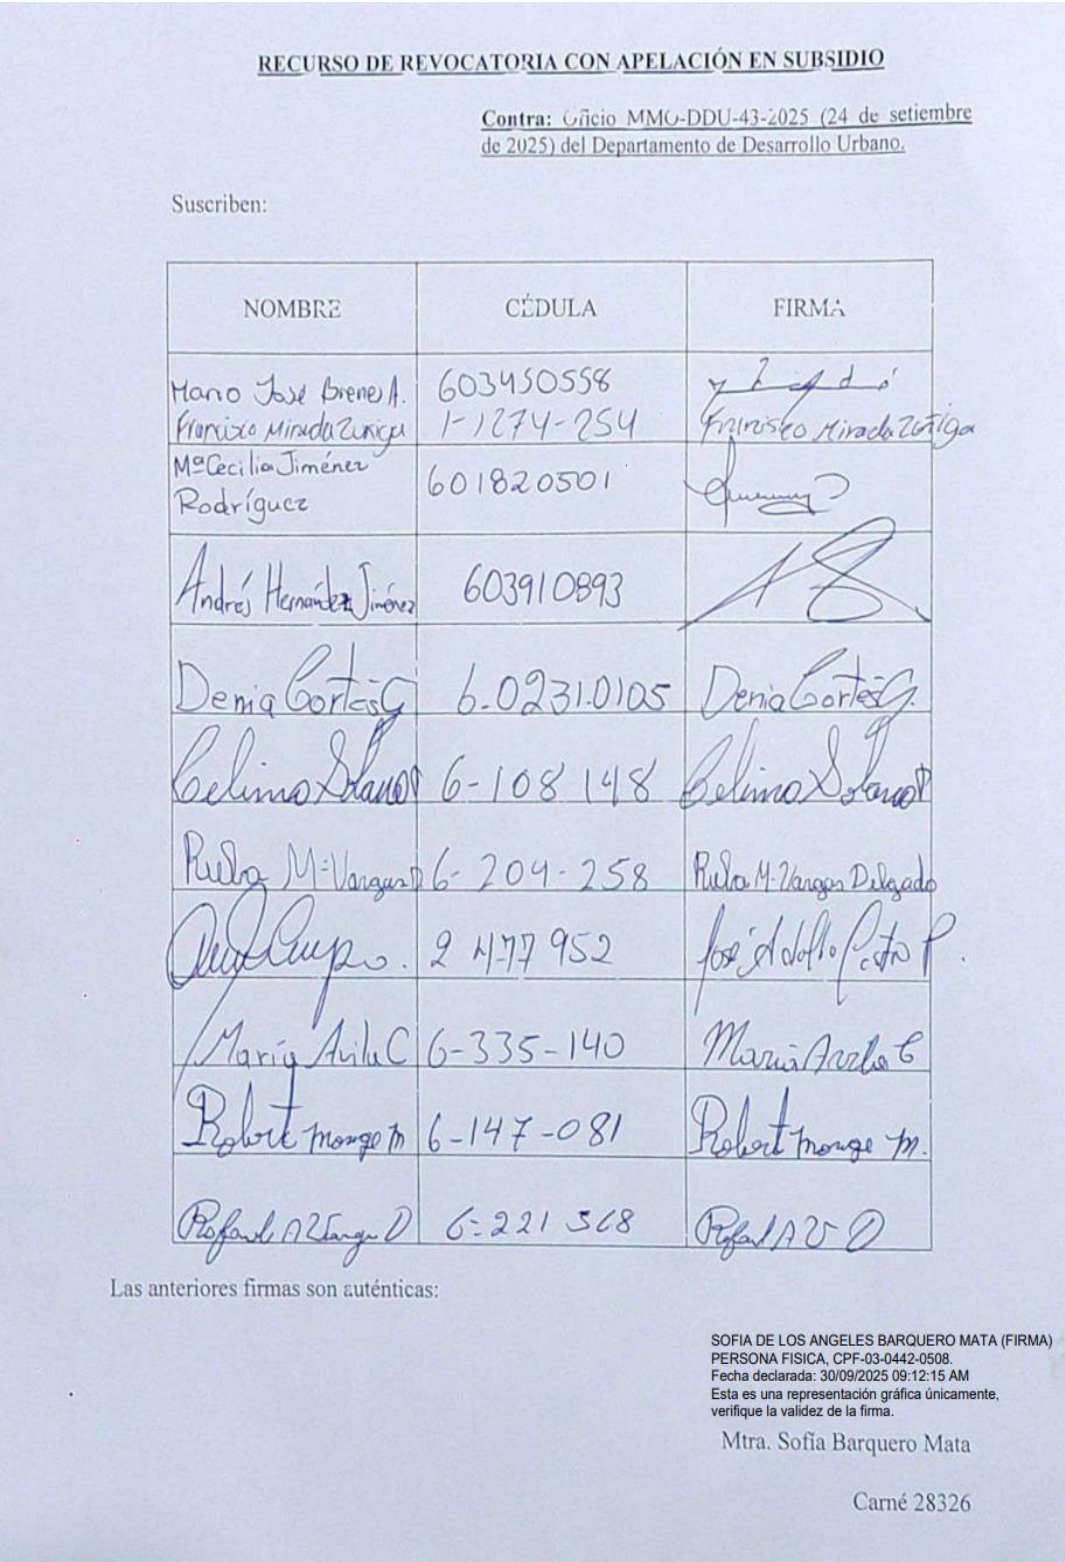 RECURSO DE REVOCATORIA CON APELACIÓN EN SUBSIDIO
Contra: Oficio MMO-DDU-43-2025 (24 de setiembre
de 2025) del Departamento de Desarrollo Urbano.
Suscriben:
NOMBRE CÉDULA FIRMA
Mario José Brenes A. 603450558
Francisco Mirada Zuñiga 1-1274-254 Francisco Mirada Zuñiga
Mª Cecilia Jiménez
Rodríguez 601820501
Andrés Hernández Jiménez 603910893
Denia Cortés G 6.0231.0105 Denia Cortés G.
Celimo Solano 6-108 148 Celimo Solano
M. Vargas D 6-204-258 M. Vargas Delgado
2 477 952 José Adolfo P.
María Avila C 6-335-140 María Avila C
Robert Monge M 6-147-081 Robert Monge M.
Rafael A Vargas D 6-221 568 Rafael A V D
Las anteriores firmas son auténticas:
SOFIA DE LOS ANGELES BARQUERO MATA (FIRMA)
PERSONA FISICA, CPF-03-0442-0508.
Fecha declarada: 30/09/2025 09:12:15 AM
Esta es una representación gráfica únicamente,
verifique la validez de la firma.
Mtra. Sofía Barquero Mata
Carné 28326